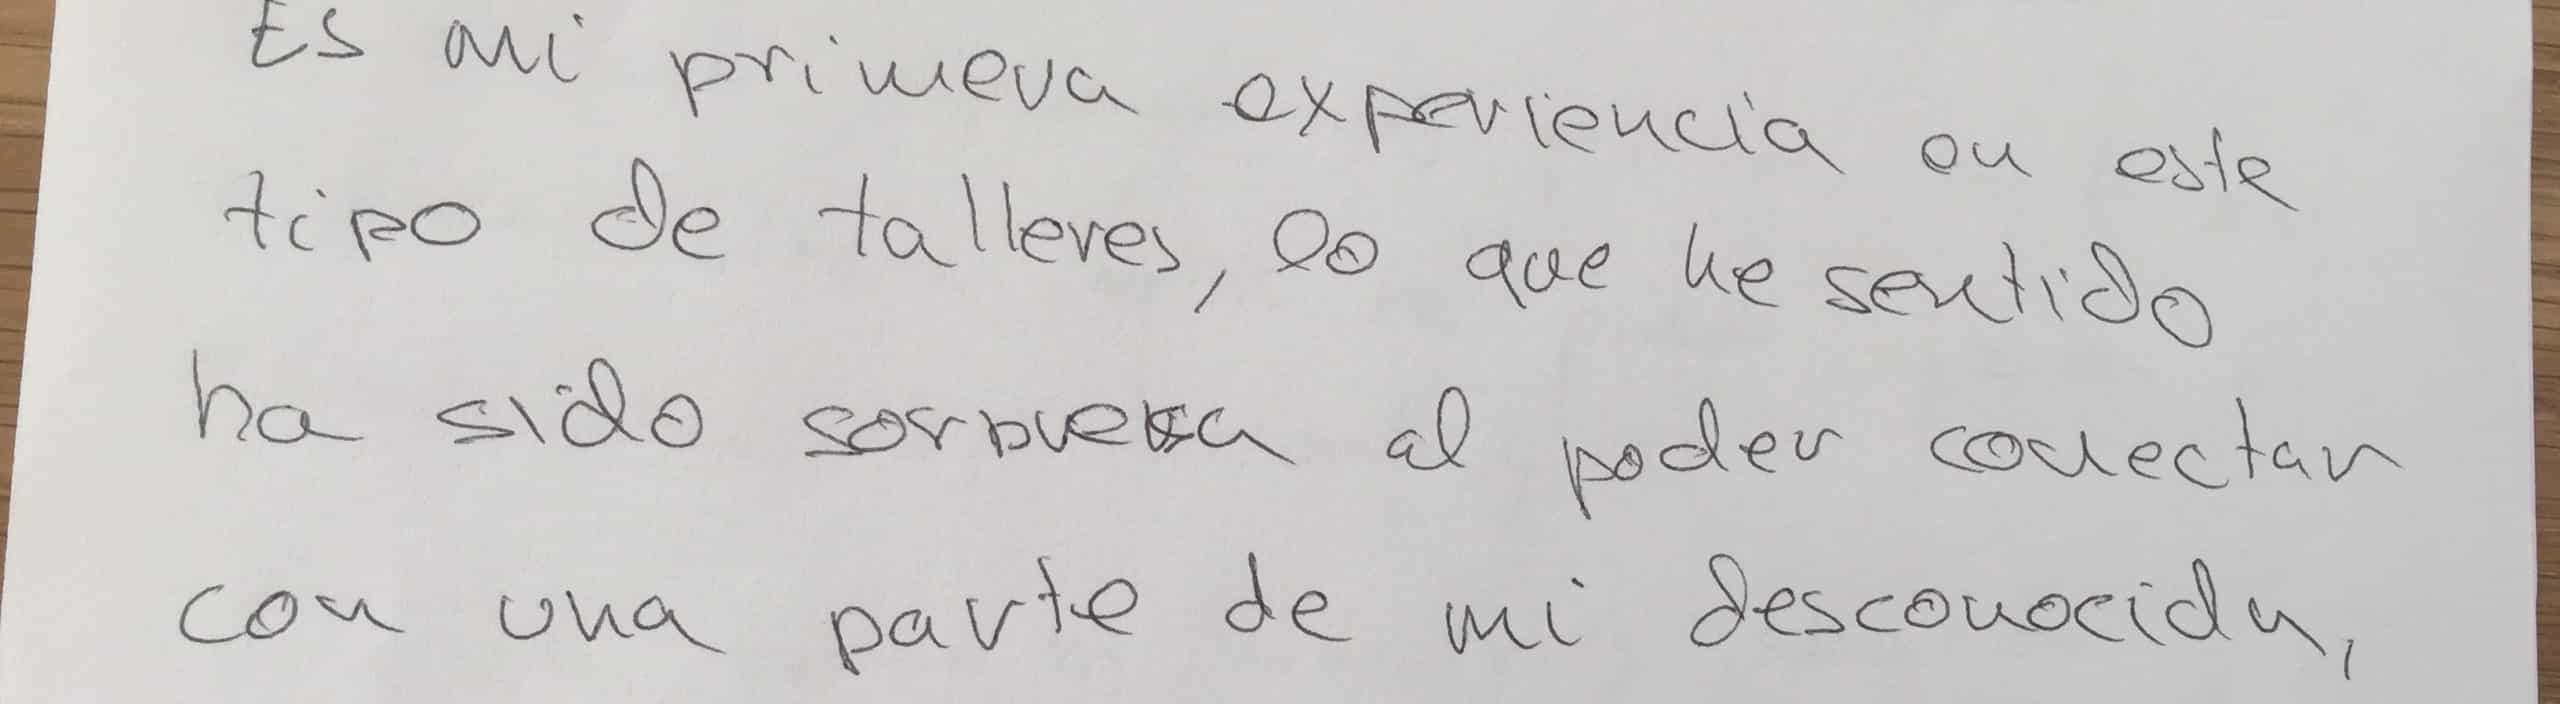 Es mi primera experiencia en este
tipo de talleres, lo que he sentido
ha sido sorpresa al poder conectar
con una parte de mi desconocida,